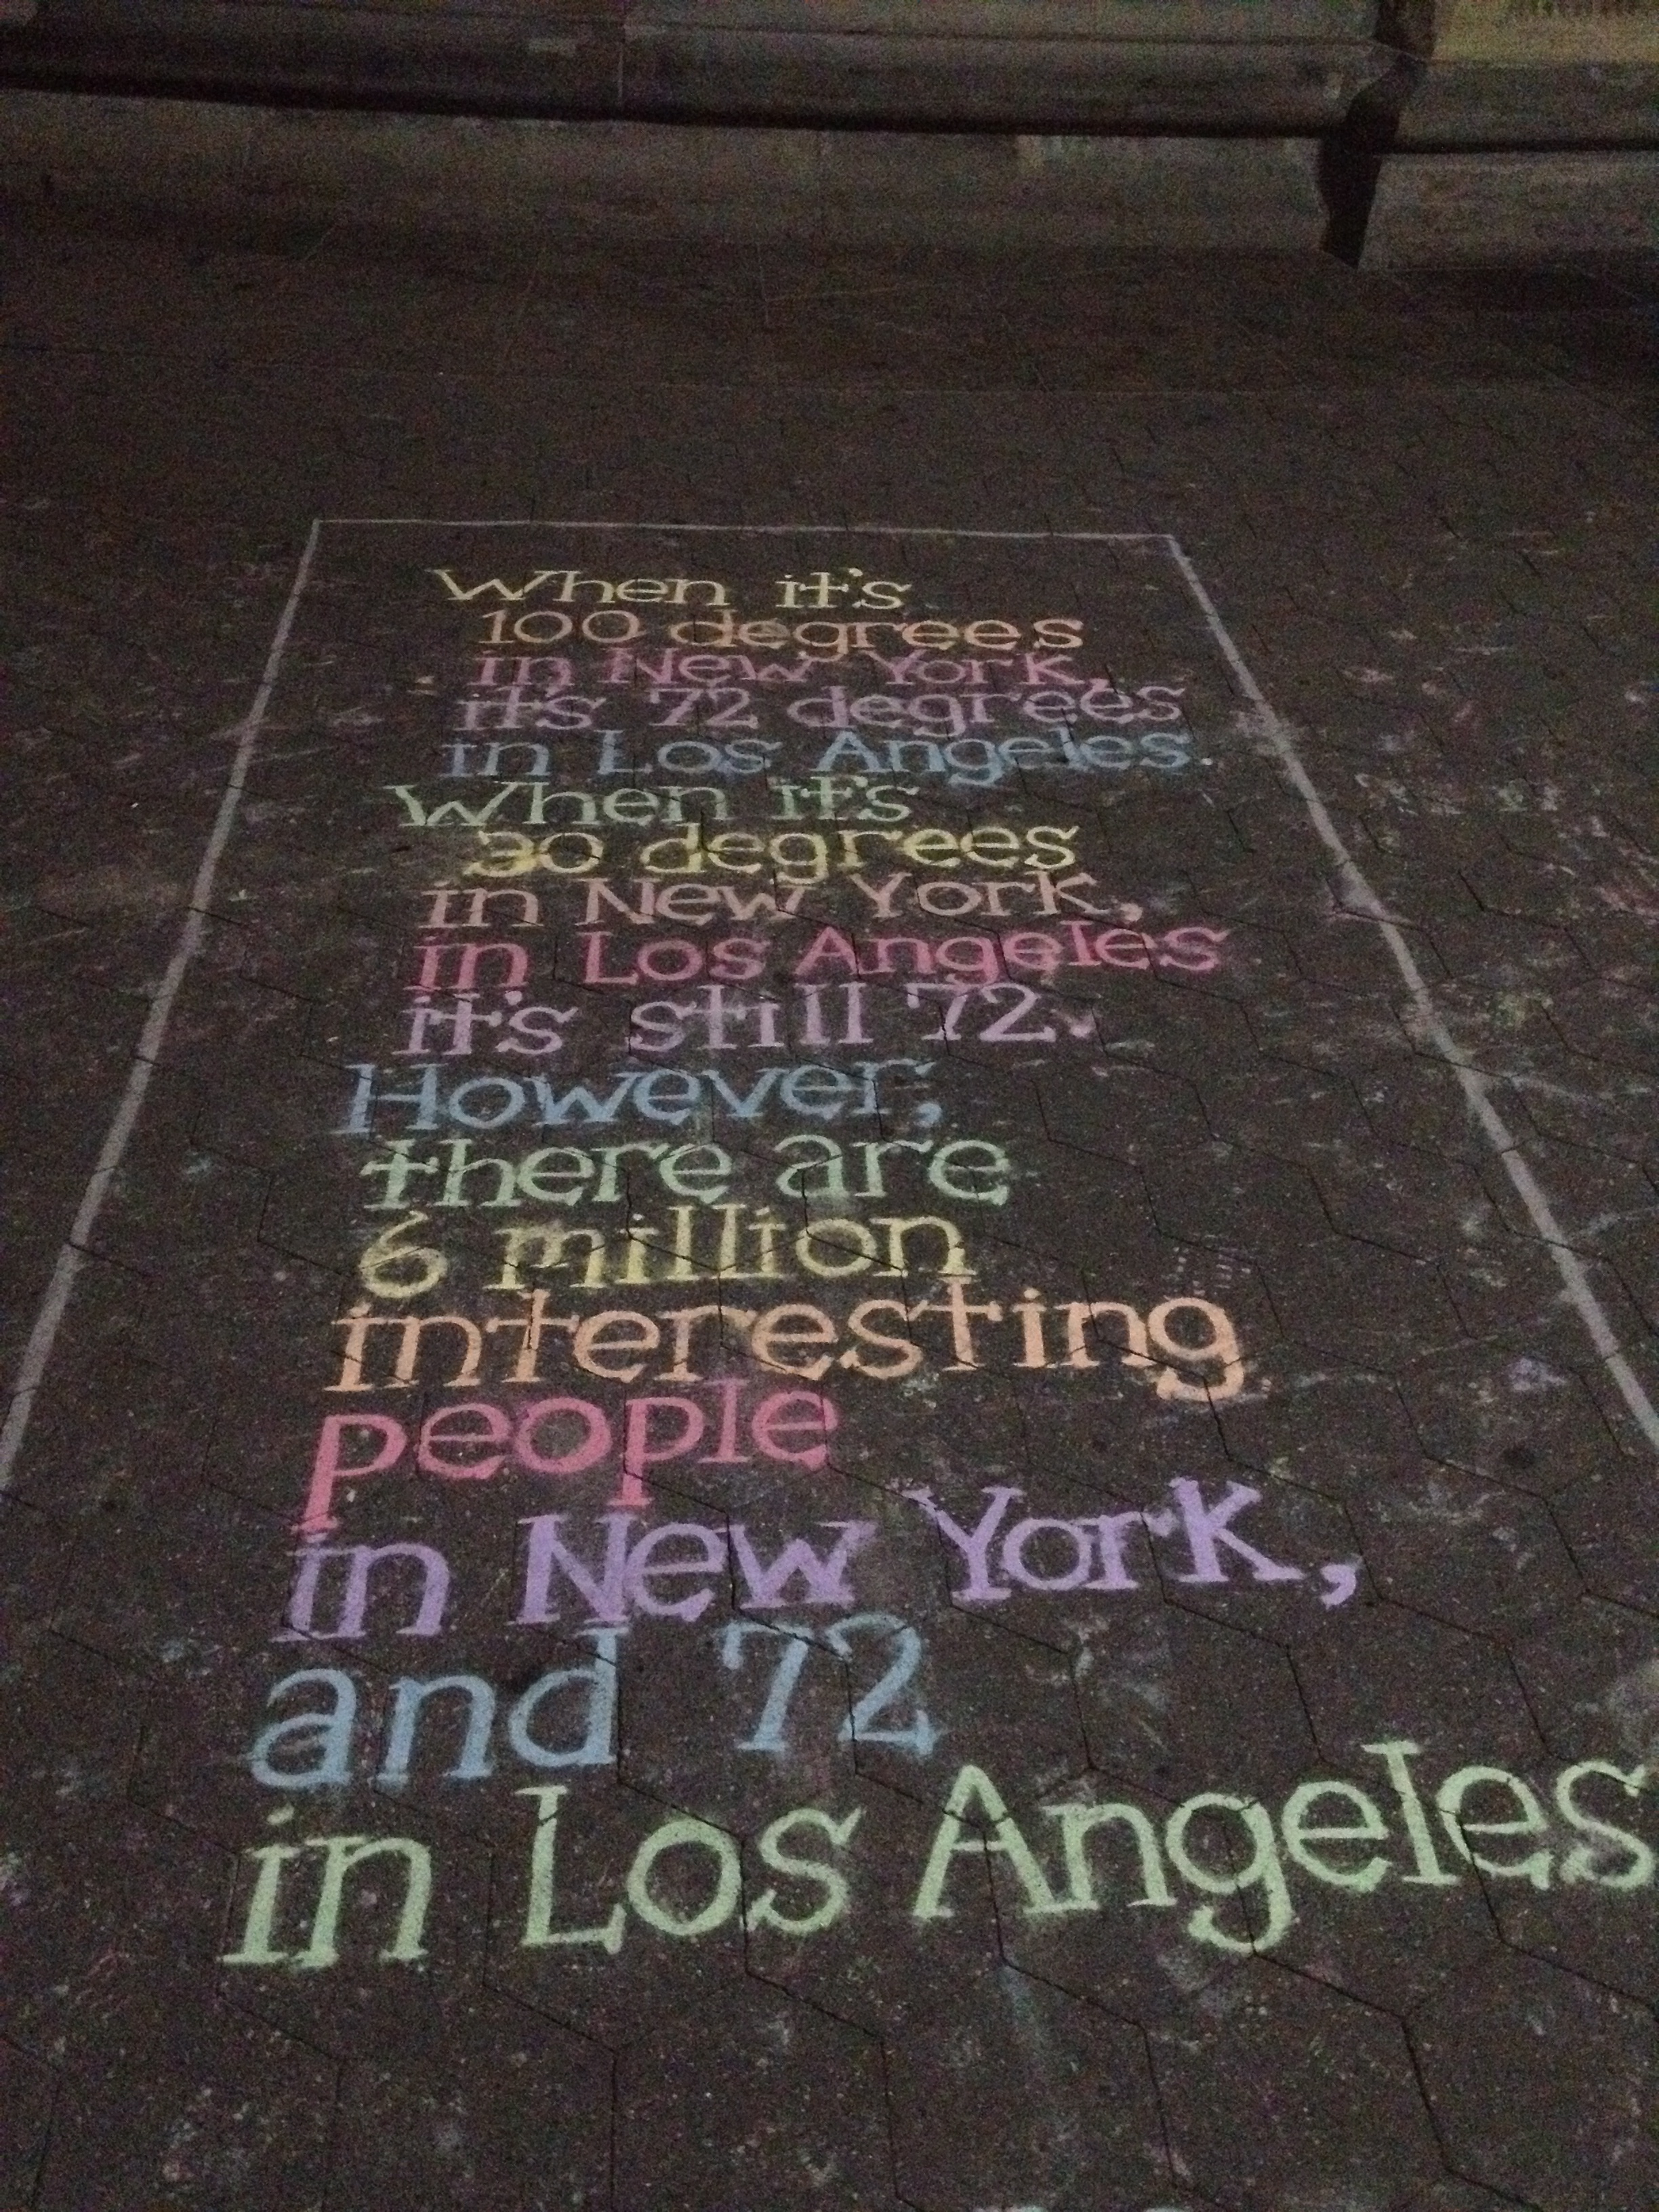 When it's
100 degrees
in New York,
it's 72 degrees
in Los Angeles.
When it's
30 degrees
in New York,
in Los Angeles
it's still 72.
However,
there are
6 million
interesting
people
in New York,
and 72
in Los Angeles